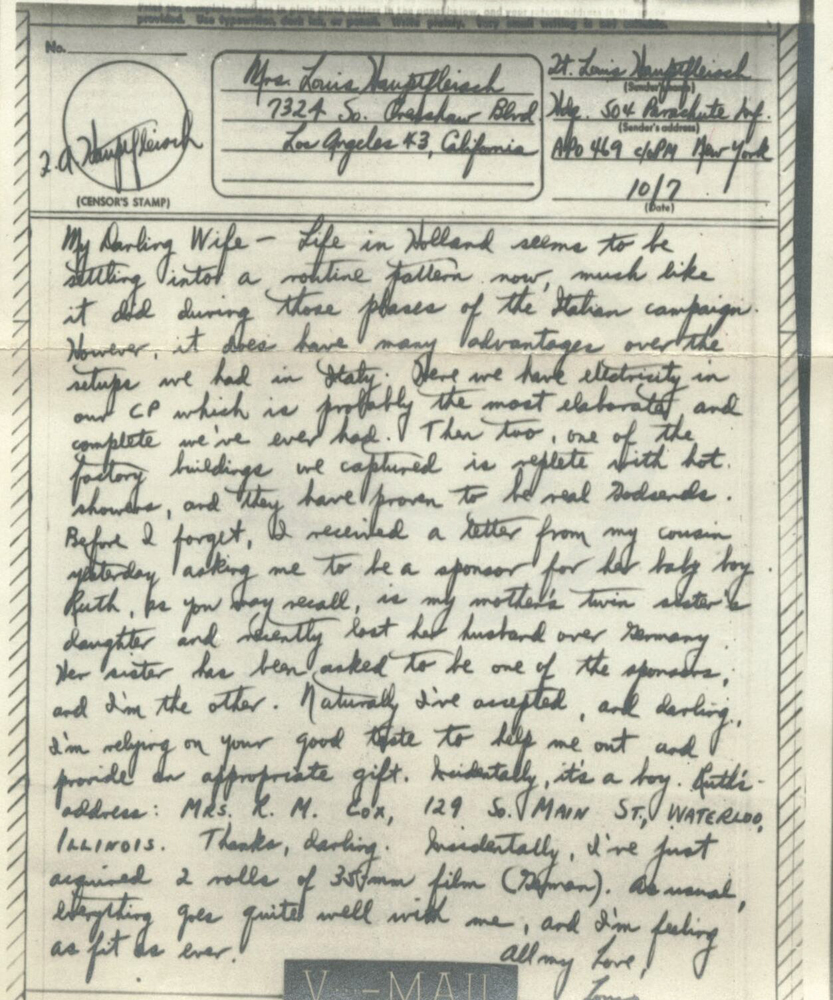 Print the complete address in plain block letters in the panel below, and your return address in the space
provided. Use typewriter, dark ink, or pencil. Write plainly. Very small writing is not suitable.
No.
Mrs. Louis Hauptfleisch
7324 So. Crenshaw Blvd.
Los Angeles 43, California
Lt. Louis Hauptfleisch
(Sender's name)
Hdq. 504 Parachute Inf.
(Sender's address)
APO 469 c/o PM New York
10/7
(Date)
L.A. Hauptfleisch
(CENSOR'S STAMP)
My Darling Wife — Life in Holland seems to be
settling into a routine pattern now, much like
it did during those phases of the Italian campaign.
However, it does have many advantages over the
setups we had in Italy. Here we have electricity in
our CP which is probably the most elaborate and
complete we've ever had. Then too, one of the
factory buildings we captured is replete with hot
showers, and they have proven to be real Godsends.
Before I forget, I received a letter from my cousin
yesterday asking me to be a sponsor for her baby boy.
Ruth, as you may recall, is my mother's twin sister's
daughter and recently lost her husband over Germany.
Her sister has been asked to be one of the sponsors,
and I'm the other. Naturally I've accepted, and darling,
I'm relying on your good taste to help me out and
provide an appropriate gift. Incidentally, it's a boy. Ruth's
address: MRS. R. M. COX, 129 So. MAIN ST., WATERLOO,
ILLINOIS. Thanks, darling. Incidentally, I've just
acquired 2 rolls of 35mm film (German). As usual,
everything goes quite well with me, and I'm feeling
as fit as ever.
All my Love,
Louis
V-MAIL